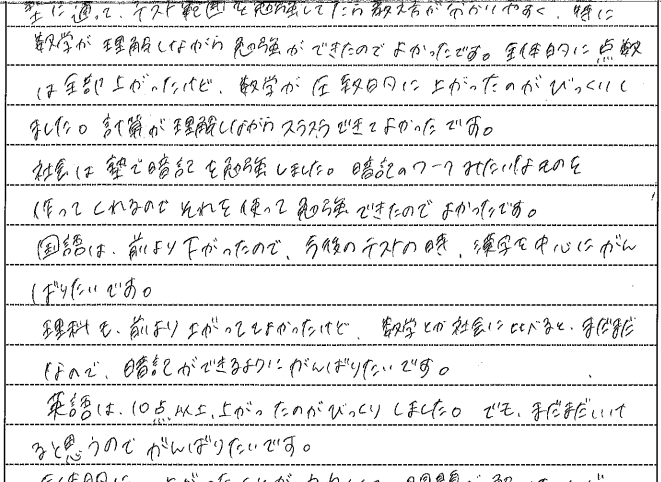 塾に通って、テスト範囲を勉強してたら教え方が分かりやすく、特に
数学が理解しながら勉強ができたのでよかったです。全体的に点数
は全部上がったけど、数学が圧倒的に上がったのがびっくりし
ました。計算が理解しながらスラスラできてよかったです。
社会は塾で暗記を勉強しました。暗記のワークみたいなものを
作ってくれるのでそれを使って勉強できたのでよかったです。
国語は、前より下がったので、今後のテストの時、漢字を中心にがん
ばりたいです。
理科も、前より上がっててよかったけど、数学とか社会に比べると、まだまだ
なので、暗記ができるようにがんばりたいです。
英語は、10点以上、上がったのがびっくりしました。でも、まだまだいけ
ると思うのでがんばりたいです。